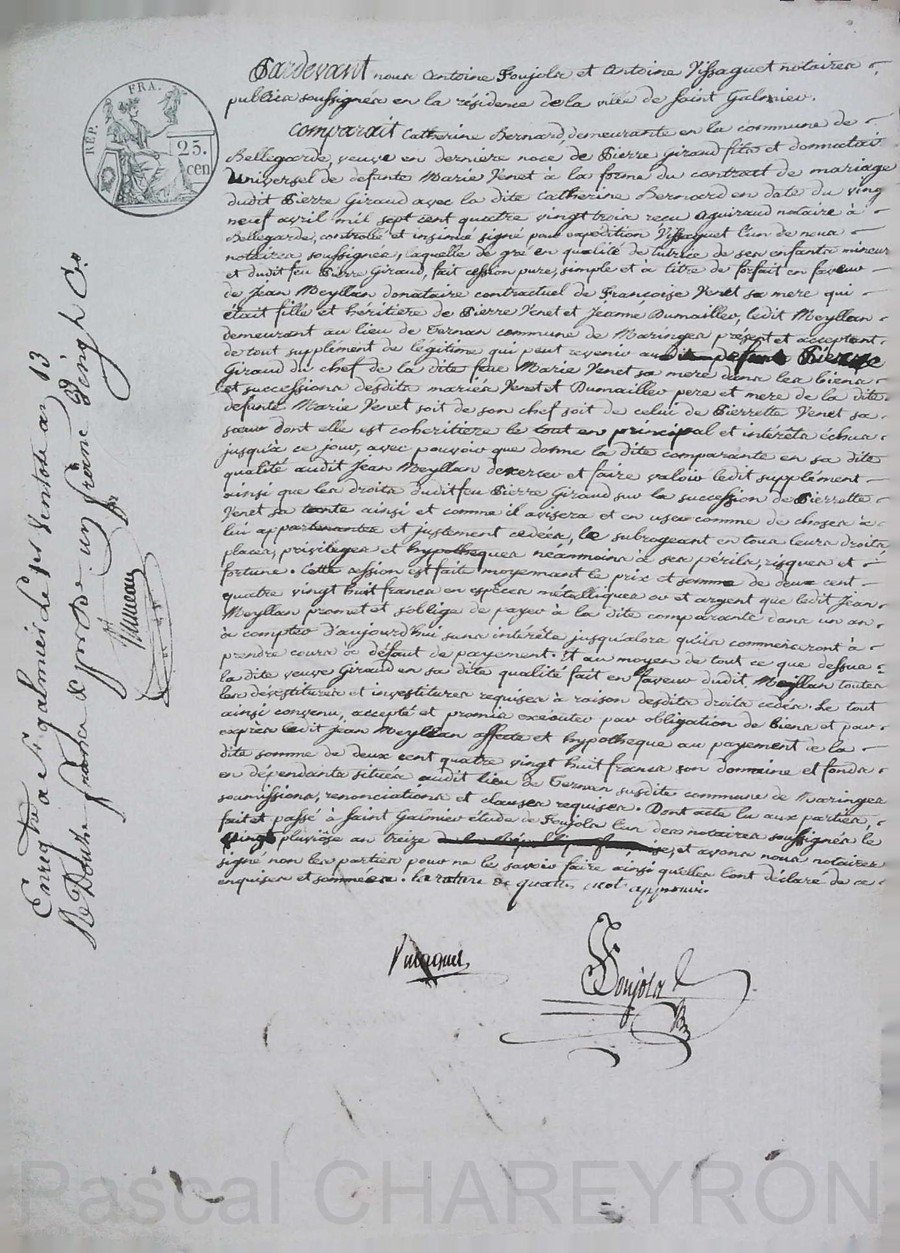 REP. FRA.
25.
cen
Pardevant nous Antoine Poujola et Antoine Vissaguet notaires
publics soussignés en la résidence de la ville de Saint Galmier.
Comparait Catherine Bernard, demeurante en la commune de
Bellegarde, veuve en derniere noce de Pierre Giraud fils et donnatais
universel de defunte Marie Venet à la forme du contrat de mariage
dudit Pierre Giraud avec la dite Catherine Bernard en date du ving
neuf avril mil sept cent quatre vingt trois recu Aguiraud notaire à
Bellegarde, controllé et insinué signé pour expédition Vissaguet l'un de nous
notaires soussignés, laquelle de gré en qualité de tutrice de ses enfants mineurs
et dudit feu Pierre Giraud, fait cession pure, simple et a titre de forfait en faveur
de Jean Meyllan donataire contractuel de Francoise Venet sa mere qui
était fille et héritiere de Pierre Venet et Jeanne Dumaillev, ledit Meyllan
demeurant au lieu de Ternan commune de Maringes présent et acceptant
de tout supplément de légitime qui peut revenir au Pierre
Giraud du chef de la dite feue Marie Venet sa mere dans les biens
et successions desdits mariés Venet et Dumaillev pere et mere de la dite
defunte Marie Venet soit de son chef soit de celui de Pierrette Venet sa
sœur dont elle est coheritiere le tout en principal et intérêts échus
jusqu'à ce jour, avec pouvoir que donne la dite comparante en sa dite
qualité audit Jean Meyllan d'exercer et faire valoir ledit supplément
ainsi que les droits dudit feu Pierre Giraud sur la succession de Pierrette
Venet sa tante ainsi et comme il avisera et en user comme de choses à
lui appartenantes et justement cedées, le subrogeant en tous leurs droits
places, privileges et hypotheques néanmoins à ses périls, risques et
fortune. Cette cession est faite moyennant le prix et somme de deux cent
quatre vingt huit francs en espèces metalliques or et argent que ledit Jean
Meyllan promet et s'oblige de payer à la dite comparante dans un an
à compter d'aujourd'hui sans intérêts jusqu'alors qu'ils commenceront à
prendre cours à défaut de payement. Et au moyen de tout ce que dessus
la dite veuve Giraud en sa dite qualité fait en faveur dudit Meyllan toutes
les devestitures et investitures requises à raison desdits droits cedés. Le tout
ainsi convenu, accepté et promis exécuter par obligation de biens et par
exprès ledit Jean Meyllan affecte et hypotheque au payement de la
dite somme de deux cent quatre vingt huit francs son domaine et fonds
en dépendants situés audit lieu de Ternan susdite commune de Maringes
soumissions, renonciations et clauses requises. Dont acte lu aux parties,
fait et passé à Saint Galmier étude de Poujola l'un des notaires soussignés le
vingt pluviose an treize, et avons nous notaires
signé non les parties pour ne le savoir faire ainsi qu'elles l'ont déclaré de ce
enquises et sommées. la rature de quatre mot approuvé
Poujola
Enreg tré a St galmier le 1er Ventose an 13
Pascal CHAREYRON